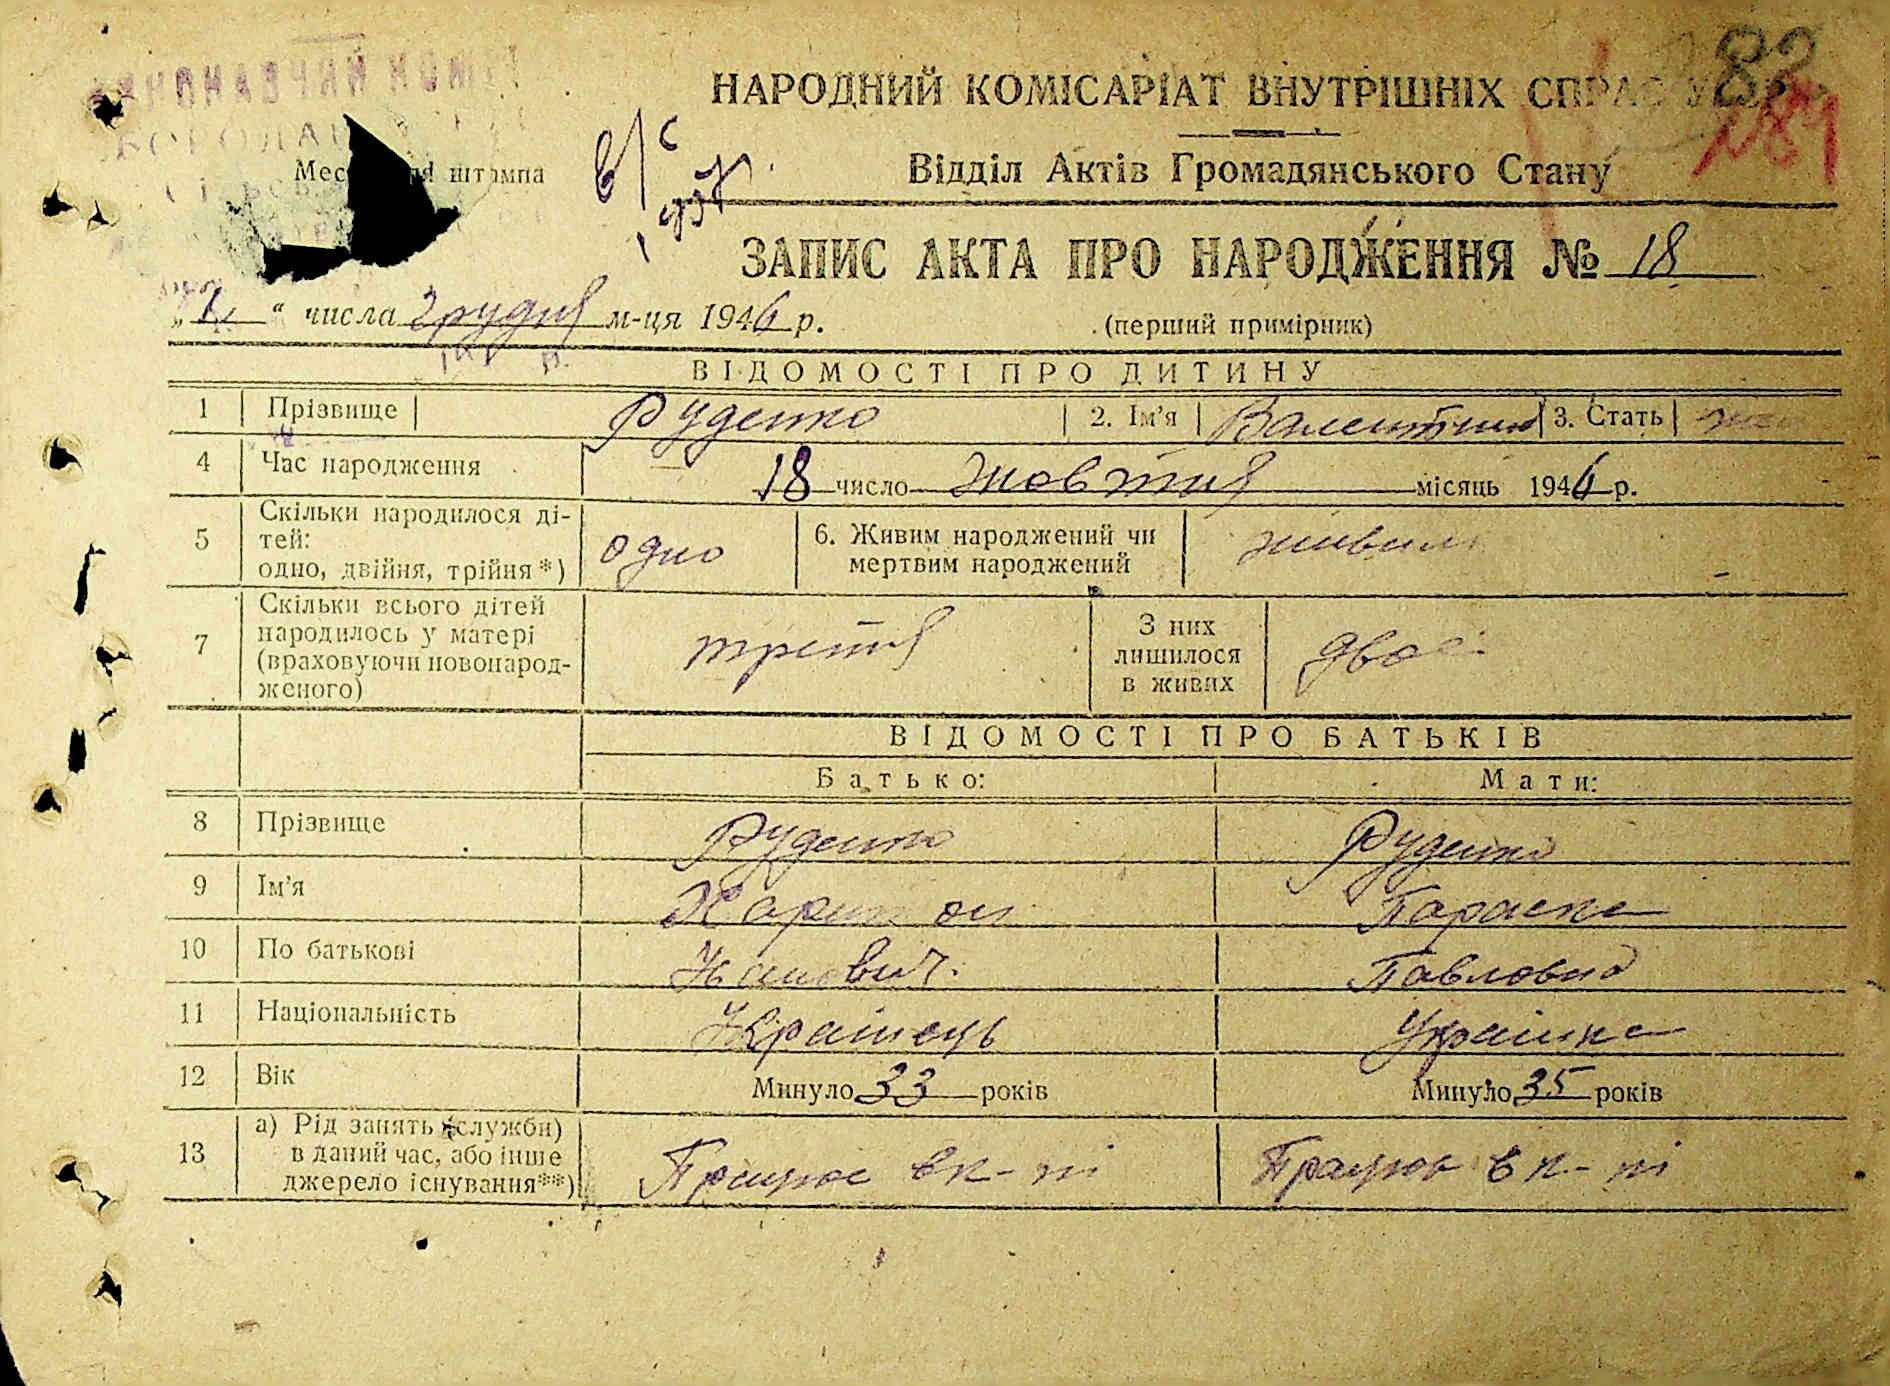 83
НАРОДНИЙ КОМІСАРІАТ ВНУТРІШНІХ СПРАВ
189
Відділ Актів Громадянського Стану
штампа
в/с
ЗАПИС АКТА ПРО НАРОДЖЕННЯ № 18
" числа грудня м-ця 1946 р.
(перший примірник)
ВІДОМОСТІ ПРО ДИТИНУ
1 Прізвище Руденко 2. Ім'я Валентина 3. Стать
4 Час народження 18 число жовтня місяць 1946 р.
5 Скільки народилося ді-
тей:
одно, двійня, трійня*) одно 6. Живим народжений чи
мертвим народжений живим
7 Скільки всього дітей
народилось у матері
(враховуючи новонарод-
женого) третя З них
лишилося
в живих двоє
ВІДОМОСТІ ПРО БАТЬКІВ
Батько: Мати:
8 Прізвище Руденко Руденко
9 Ім'я Харитон Параска
10 По батькові Іванович. Павловна
11 Національність Українець Українка
12 Вік Минуло 33 років Минуло 35 років
13 а) Рід занять (служби)
в даний час, або інше
джерело існування**) Працює в к-пі Працює в к-пі